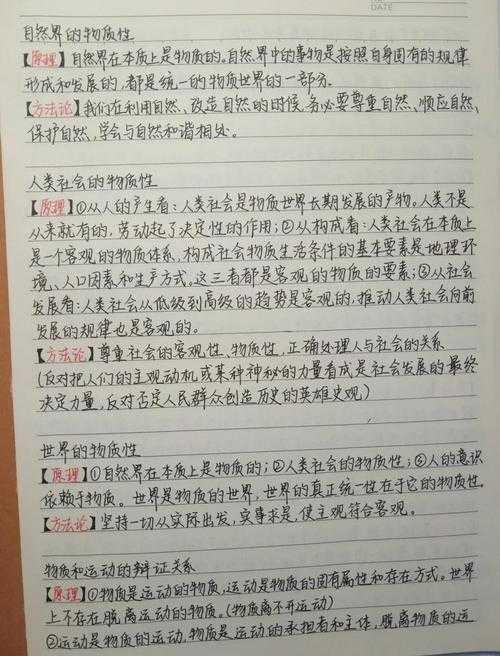 DATE
自然界的物质性
【原理】自然界在本质上是物质的。自然界中的事物是按照自身固有的规律
形成和发展的,都是统一的物质世界的一部分.
【方法论】我们在利用自然、改造自然的时候,务必要尊重自然、顺应自然、
保护自然,学会与自然和谐相处。
人类社会的物质性
【原理】①从人的产生看:人类社会是物质世界长期发展的产物。人类不是
从来就有的,劳动起了决定性的作用;②从构成看:人类社会在本质上
是一个客观的物质体系,构成社会物质生活条件的基本要素是地理环
境、人口因素和生产方式。这三者都是客观的物质的要素;③从社会
发展看:人类社会从低级到高级的趋势是客观的,推动人类社会向前
发展的规律也是客观的。
【方法论】尊重社会的客观性、物质性,正确处理人与社会的关系
(反对把人们的主观动机或某种神秘的力量看成是社会发展的最终
决定力量,反对否定人民群众创造历史的英雄史观)
世界的物质性
【原理】①自然界在本质上是物质的;②人类社会的物质性;③人的意识
依赖于物质。世界是物质的世界,世界的真正统一性在于它的物质性.
【方法论】坚持一切从实际出发,实事求是,使主观符合客观。
物质和运动的辩证关系
【原理】①物质是运动的物质,运动是物质的固有属性和存在方式。世界
上不存在脱离运动的物质。(物质离不开运动)
②运动是物质的运动,物质是运动的承担者和主体,脱离物质的运